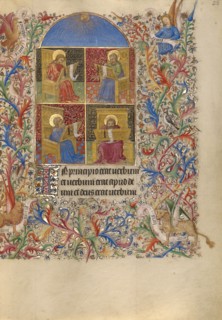 In principio erat verbum
et verbum erat apud de
um et deus erat verbum